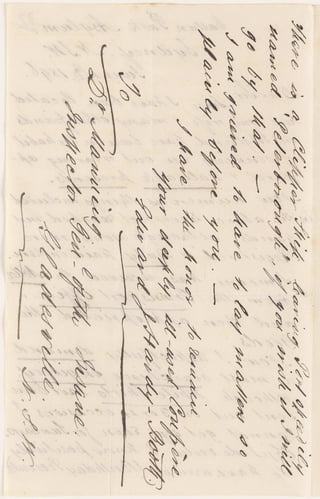 There is a Clipper Ship leaving Port quickly
named "Peterborough" if you wish it I will
go by that —
I am grieved to have to lay matters so
plainly before you. —
I have the honor to remain
Your deeply ill-used Confrère
Edward J. Hardy-
To
Dr. Manning
Inspector Gen. of the Insane
Gladesville
N. S. W.